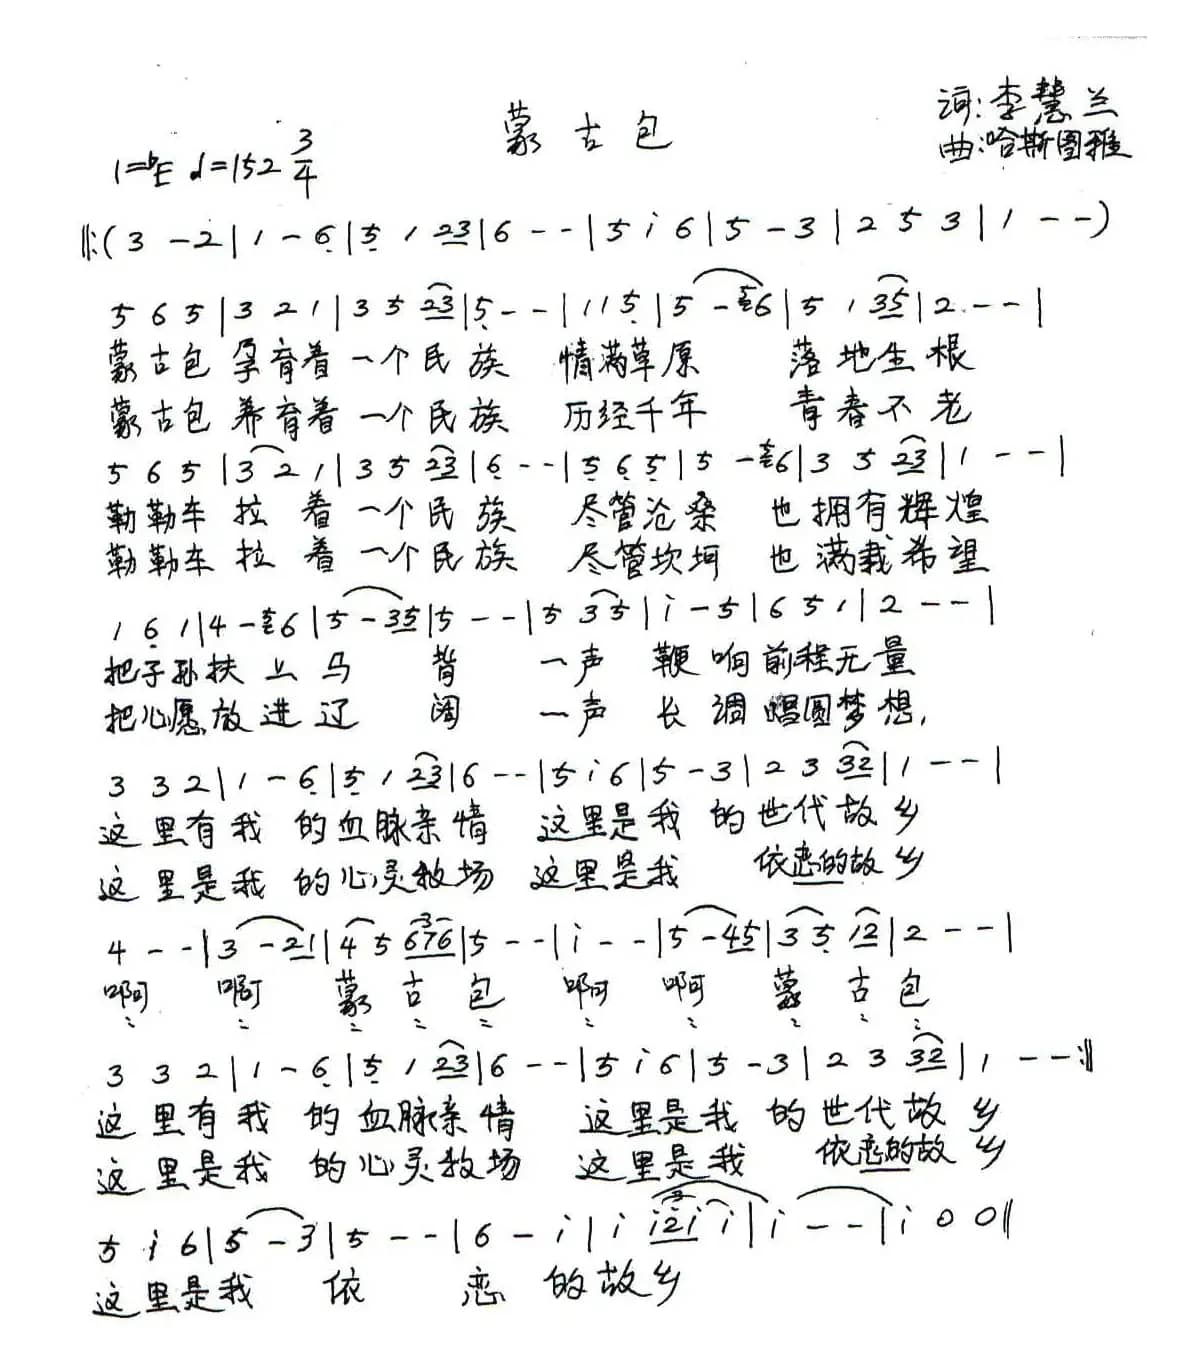 蒙古包
词:李慧兰
1=bE ♩=152 3/4
曲:哈斯图雅
‖:(3 - 2 | 1 - 6̣ | 5̣ 1 23 | 6 - - | 5 i 6 | 5 - 3 | 2 5 3 | 1 - -)
5 6 5 | 3 2 1 | 3 5 23 | 5̣ - - | 1 1 5̣ | 5 - 6 | 5 1 35 | 2 - - |
蒙古包 孕育着 一个民族 情满草原 落地生根
蒙古包 养育着 一个民族 历经千年 青春不老
5 6 5 | 3 2 1 | 3 5 23 | 6̣ - - | 5̣ 6̣ 5̣ | 5 - 6 | 3 5 23 | 1 - - |
勒勒车 拉着 一个民族 尽管沧桑 也拥有辉煌
勒勒车 拉着 一个民族 尽管坎坷 也满载希望
1 6̣ 1 | 4 - 6 | 5 - 35 | 5 - - | 5 3 5 | i - 5 | 6 5 1 | 2 - - |
把子孙扶上马背 一声鞭响前程无量
把心愿放进辽阔 一声长调唱圆梦想,
3 3 2 | 1 - 6̣ | 5̣ 1 23 | 6 - - | 5 i 6 | 5 - 3 | 2 3 32 | 1 - - |
这里有我的血脉亲情 这里是我的世代故乡
这里是我的心灵牧场 这里是我 依恋的故乡
4 - - | 3 - 21 | 4 5 676 | 5 - - | i - - | 5 - 45 | 3 5̣ 12 | 2 - - |
啊 啊 蒙古包 啊 啊 蒙古包
3 3 2 | 1 - 6̣ | 5̣ 1 23 | 6 - - | 5 i 6 | 5 - 3 | 2 3 32 | 1 - - :‖
这里有我的血脉亲情 这里是我的世代故乡
这里是我的心灵牧场 这里是我 依恋的故乡
5 i 6 | 5 - 3 | 5 - - | 6 - i | i i2i i | i - - | i 0 0 ‖
这里是我 依恋的故乡